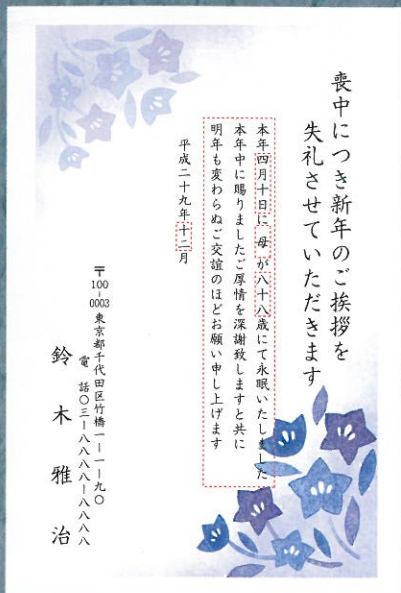 喪中につき新年のご挨拶を
失礼させていただきます
本年四月十日に 母 が八十八歳にて永眠いたしました
本年中に賜りましたご厚情を深謝致しますと共に
明年も変わらぬご交誼のほどお願い申し上げます
平成二十九年十二月
〒100-0003 東京都千代田区竹橋一ー一ー九〇
電 話〇三ー八八八八ー八八八八
鈴木雅治